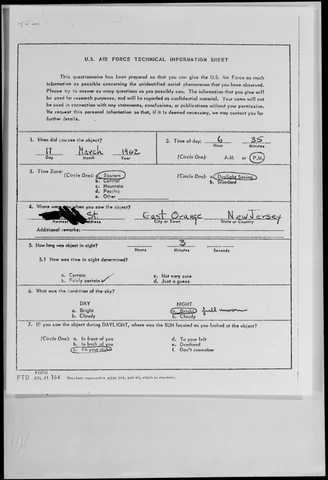 U.S. AIR FORCE TECHNICAL INFORMATION SHEET
This questionnaire has been prepared so that you can give the U.S. Air Force as much
information as possible concerning the unidentified aerial phenomenon that you have observed.
Please try to answer as many questions as you possibly can. The information that you give will
be used for research purposes, and will be regarded as confidential material. Your name will not
be used in connection with any statements, conclusions, or publications without your permission.
We request this personal information so that, if it is deemed necessary, we may contact you for
further details.
1. When did you see the object?
17 March 1962
Day Month Year
2. Time of day: 6 35
Hour Minutes
(Circle One): A.M. or P.M.
3. Time Zone:
(Circle One): a. Eastern
b. Central
c. Mountain
d. Pacific
e. Other
(Circle One): a. Daylight Saving
b. Standard
4. Where were you when you saw the object?
St. East Orange New Jersey
City or Town State or Country
Additional remarks:
5. How long was object in sight? 3
Hours Minutes Seconds
5.1 How was time in sight determined?
a. Certain c. Not very sure
b. Fairly certain d. Just a guess
6. What was the condition of the sky?
DAY NIGHT
a. Bright a. Bright full moon
b. Cloudy b. Cloudy
7. IF you saw the object during DAYLIGHT, where was the SUN located as you looked at the object?
(Circle One): a. In front of you d. To your left
b. In back of you e. Overhead
c. To your right f. Don't remember
FORM
FTD 164